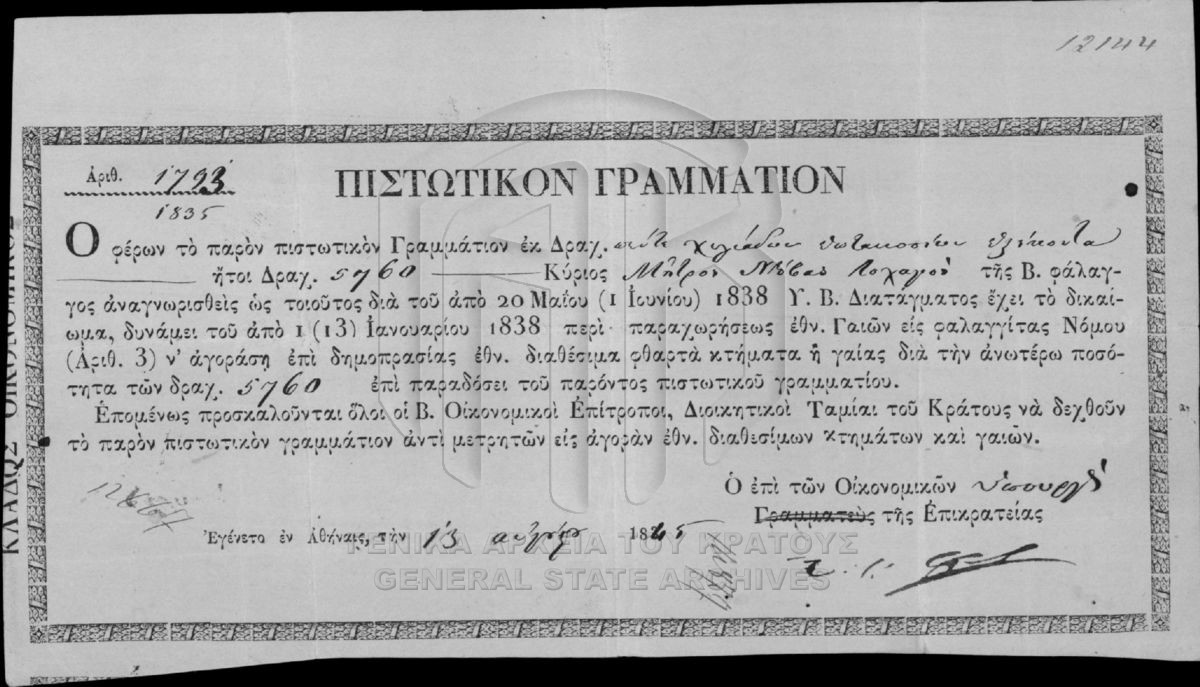 12144
Ἀριθ. 1793
1835
ΠΙΣΤΩΤΙΚΟΝ ΓΡΑΜΜΑΤΙΟΝ
Ὁ φέρων τὸ παρὸν πιστωτικὸν Γραμμάτιον ἐκ Δραχ. πέντε χιλιάδων ἑπτακοσίων ἑξήκοντα
ἤτοι Δραχ. 5760 Κύριος Μῆτρος λοχαγὸς τῆς Β. φάλαγ-
γος ἀναγνωρισθεὶς ὡς τοιοῦτος διὰ τοῦ ἀπὸ 20 Μαΐου (1 Ιουνίου) 1838 Υ. Β. Διατάγματος ἔχει τὸ δικαί-
ωμα, δυνάμει τοῦ ἀπὸ 1 (13) Ιανουαρίου 1838 περὶ παραχωρήσεως ἐθν. Γαιῶν εἰς φαλαγγίτας Νόμου
(Ἀριθ. 3) ν' ἀγοράσῃ ἐπὶ δημοπρασίας ἐθν. διαθέσιμα φθαρτὰ κτήματα ἢ γαίας διὰ τὴν ἀνωτέρω ποσό-
τητα τῶν δραχ. 5760 ἐπὶ παραδόσει τοῦ παρόντος πιστωτικοῦ γραμματίου.
Ἑπομένως προσκαλοῦνται ὅλοι οἱ Β. Οἰκονομικοὶ Ἐπίτροποι, Διοικητικοὶ Ταμίαι τοῦ Κράτους νὰ δεχθοῦν
τὸ παρὸν πιστωτικὸν γραμμάτιον ἀντὶ μετρητῶν εἰς ἀγορὰν ἐθν. διαθεσίμων κτημάτων καὶ γαιῶν.
Ὁ ἐπὶ τῶν Οἰκονομικῶν ὑπουργὸς
Γραμματεὺς τῆς Ἐπικρατείας
Ἐγένετο ἐν Ἀθήναις, τὴν 13 1845
ΚΛΑΔΟΣ ΟΙΚΟΝΟΜΙΚΟΣ
ΓΕΝΙΚΑ ΑΡΧΕΙΑ ΤΟΥ ΚΡΑΤΟΥΣ
GENERAL STATE ARCHIVES